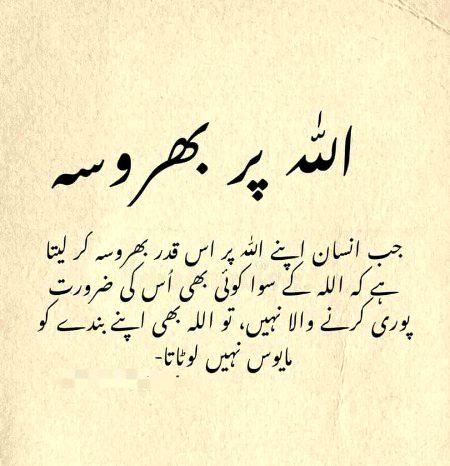 اللہ پر بھروسہ
جب انسان اپنے اللہ پر اس قدر بھروسہ کر لیتا
ہے کہ اللہ کے سوا کوئی بھی اُس کی ضرورت
پوری کرنے والا نہیں، تو اللہ بھی اپنے بندے کو
مایوس نہیں لوٹاتا-